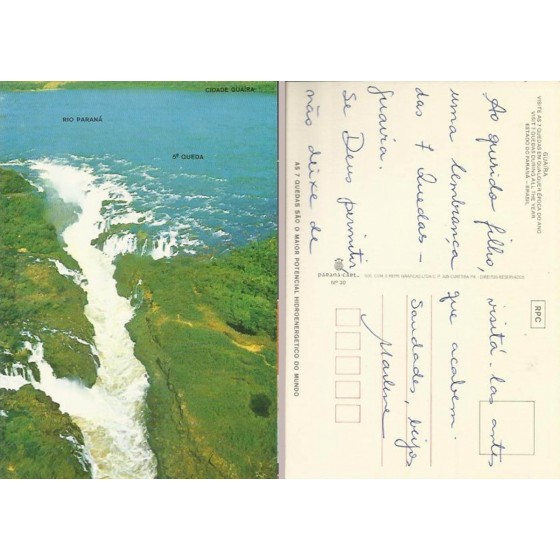 CIDADE GUAÍRA
RIO PARANÁ
5ª QUEDA
AS 7 QUEDAS SÃO O MAIOR POTENCIAL HIDROENERGETICO DO MUNDO
GUAÍRA
VISITE AS 7 QUEDAS EM QUALQUER ÉPOCA DO ANO
VISIT 7 QUEDAS DURING ALL THE YEAR
ESTADO DO PARANÁ - BRASIL
Ao querido filho,
uma lembrança
das 7 Quedas -
Guaira.
Se Deus permitir
não deixe de
visitá-las antes
que acabem.
Saudades, beijos
Marlene
PARANÁ-CART.
Nº 30
DIREITOS RESERVADOS
RPC